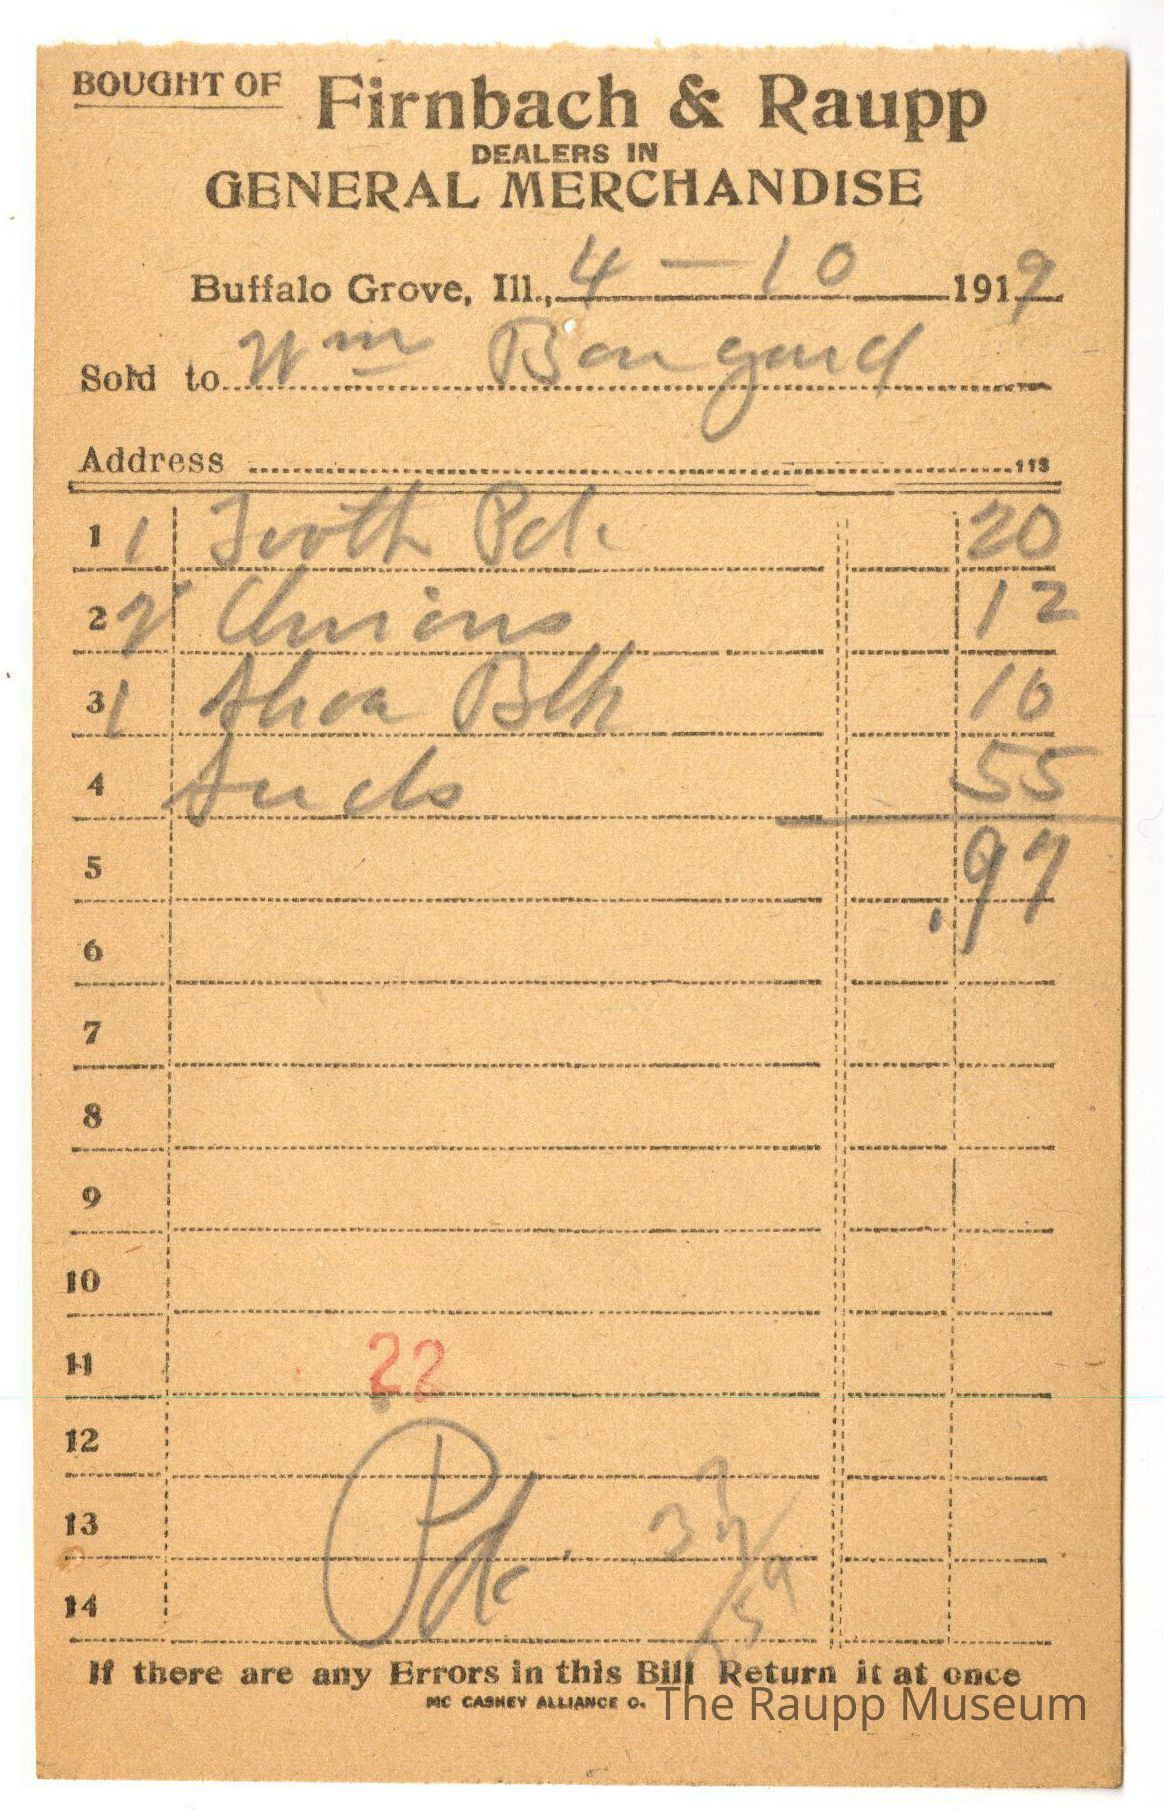 BOUGHT OF Firnbach & Raupp
DEALERS IN
GENERAL MERCHANDISE
Buffalo Grove, Ill., 4 - 10 1919
Sold to Wm Bongard
Address 113
1 1 Tooth Pdr 20
2 2 Onions 12
3 1 Shoe Blk 10
4 Suds 55
5 .97
6
7
8
9
10
11 22
12
13 Pd.
14
If there are any Errors in this Bill Return it at once
MC CASKEY ALLIANCE O.
The Raupp Museum